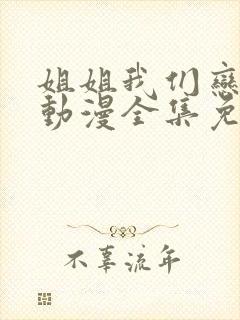 姐姐我们戀
動漫全集免
不辜流年